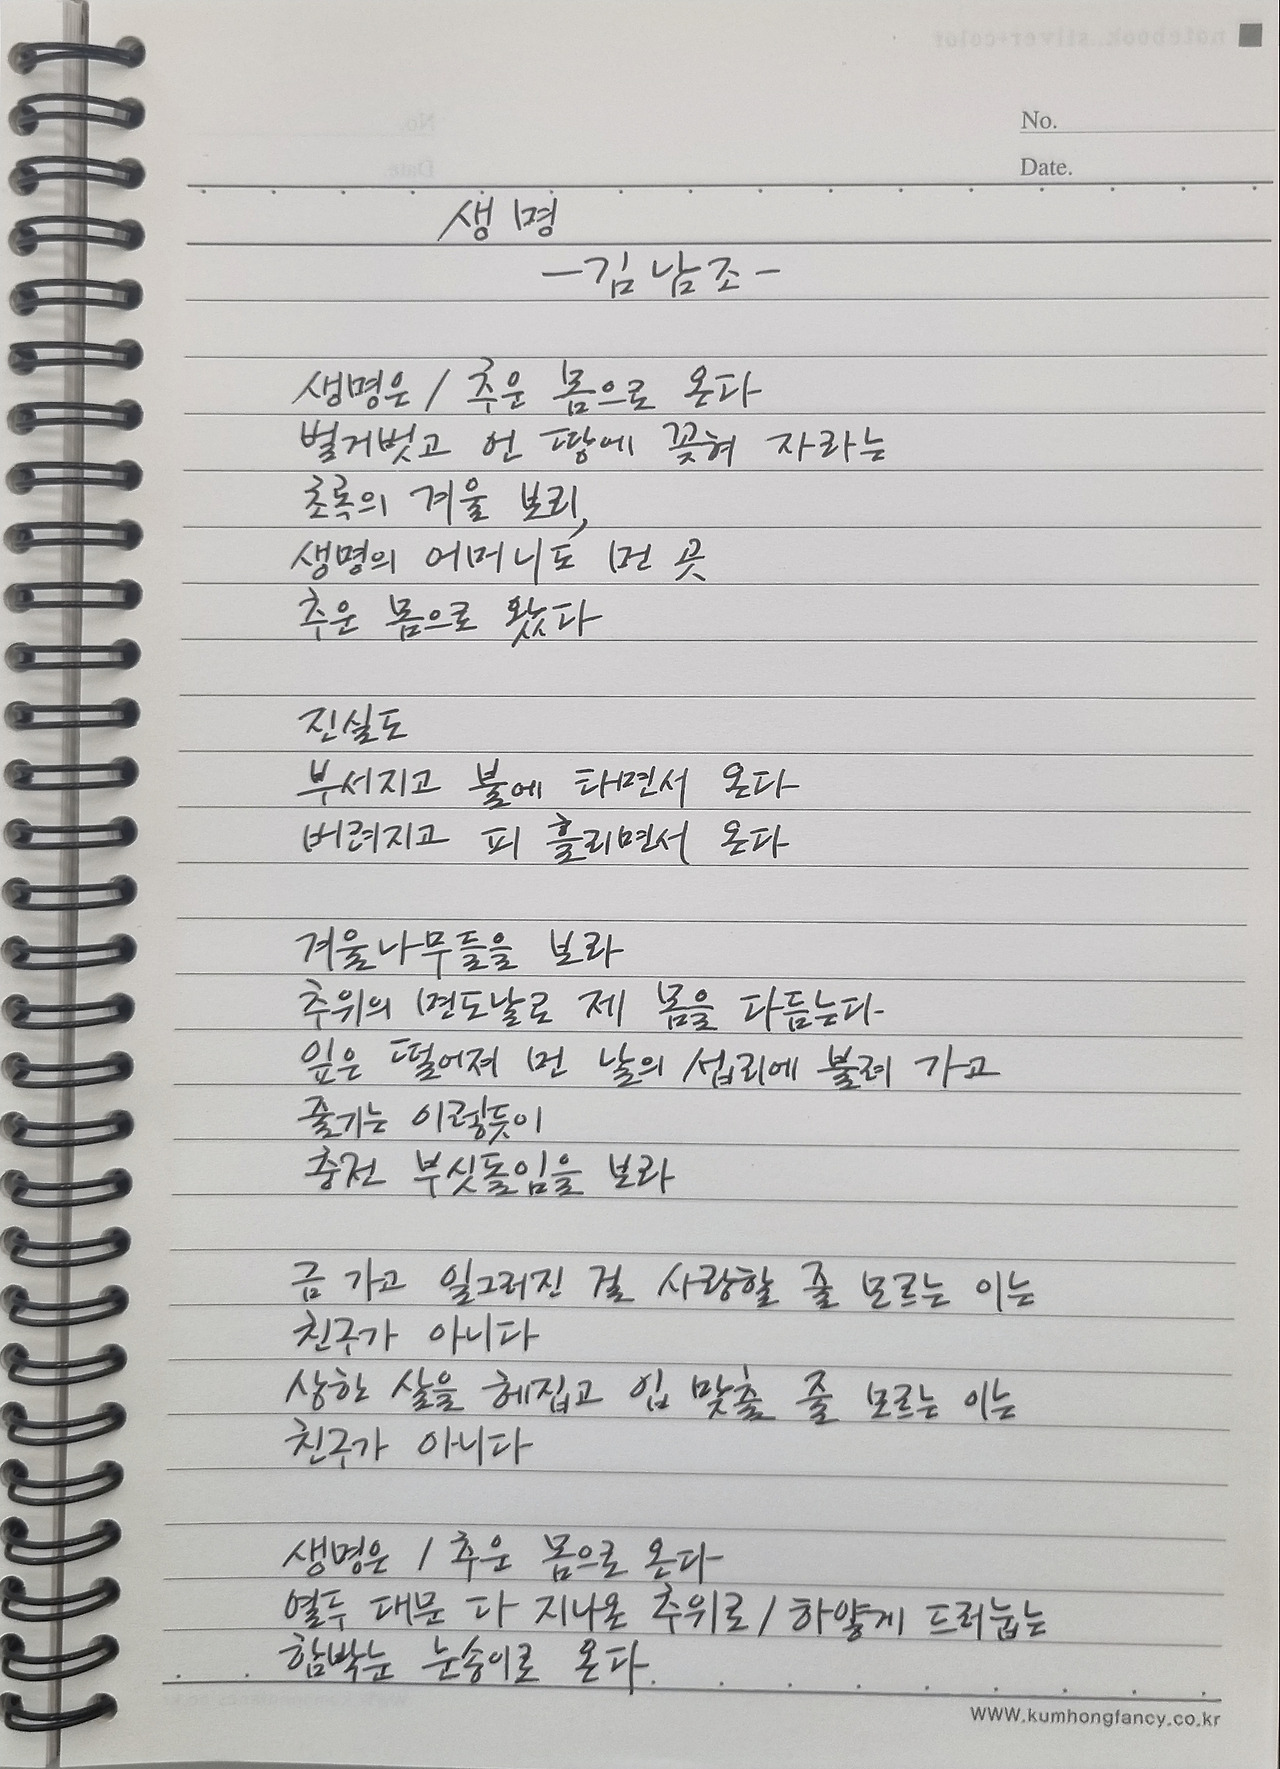 notebook silver+color
No.
Date.
생명
-김남조-
생명은 / 추운 몸으로 온다
벌거벗고 언 땅에 꽂혀 자라는
초록의 겨울 보리,
생명의 어머니도 먼 곳
추운 몸으로 왔다
진실도
부서지고 불에 타면서 온다
버려지고 피 흘리면서 온다
겨울나무들을 보라
추위의 면도날로 제 몸을 다듬는다
잎은 떨어져 먼 날의 섭리에 불려 가고
줄기는 이렇듯이
충전 부싯돌임을 보라
금 가고 일그러진 걸 사랑할 줄 모르는 이는
친구가 아니다
상한 살을 헤집고 입 맞출 줄 모르는 이는
친구가 아니다
생명은 / 추운 몸으로 온다
열두 대문 다 지나온 추위로 / 하얗게 드러눕는
함박눈 눈송이로 온다.
www.kumhongfancy.co.kr